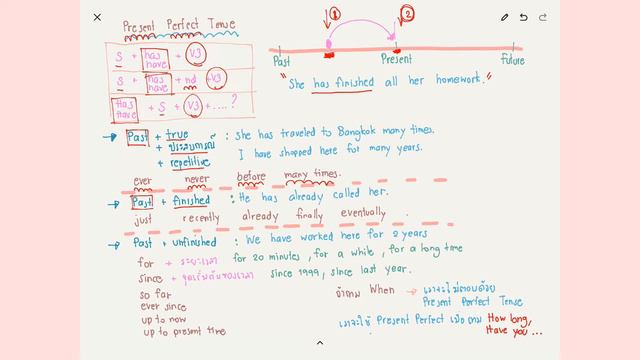 Present Perfect Tense
S + has have + V3
S + has have + not + V3
Has Have + S + V3 + ....?
① ②
Past Present Future
"She has finished all her homework."
Past + true : She has traveled to Bangkok many times.
+ ประสบการณ์ I have shopped here for many years.
+ repetitive
ever never before many times.
Past + finished : He has already called her.
just recently already finally eventually .
Past + unfinished : We have worked here for 2 years
for + ระยะเวลา for 20 minutes, for a while, for a long time
since + จุดเริ่มต้นของเวลา since 1999, since last year.
so far
ever since
up to now
up to present time
ถ้าถาม When → เราจะไม่ตอบด้วย
Present Perfect Tense
เราจะใช้ Present Perfect เมื่อถาม How long,
Have you ...